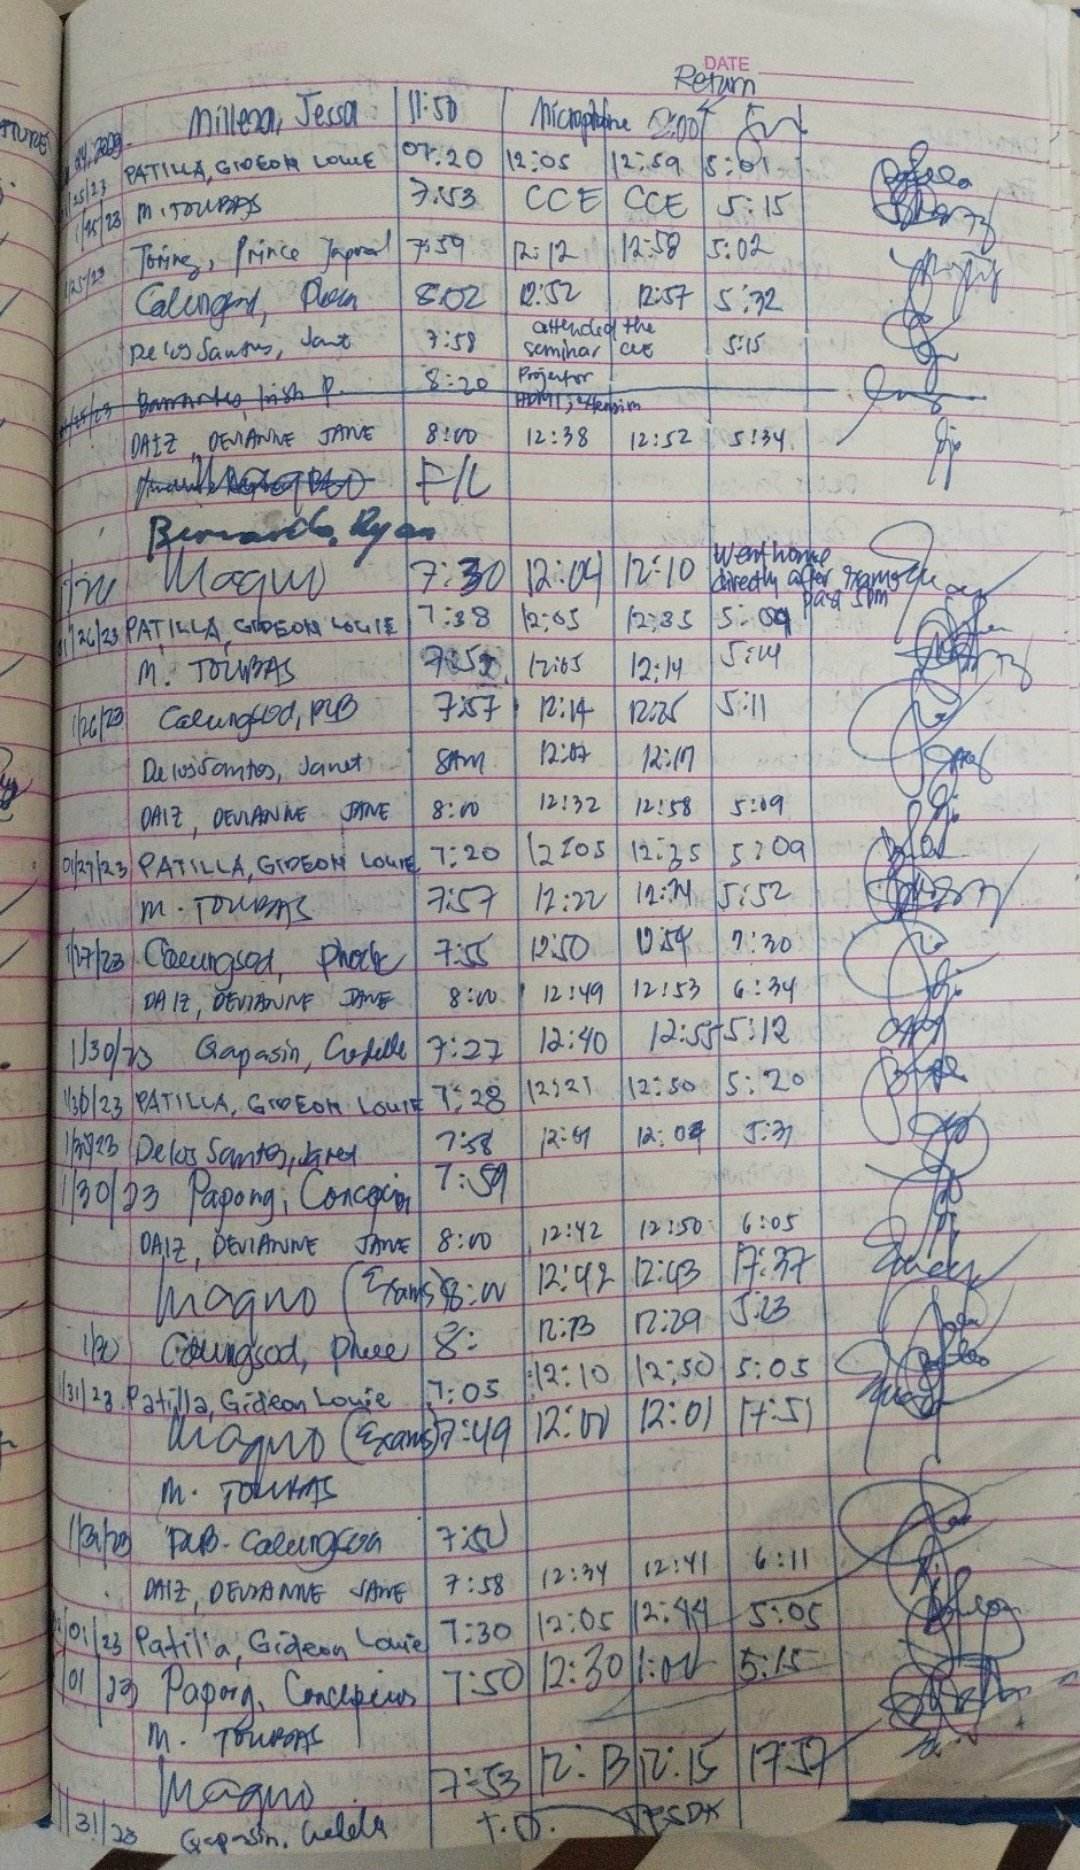 DATE
Return
TURE
Millena, Jessa 11:50 Microphone
PATILLA, GIDEON LOUIE 07:20 12:05 12:59 5:01
1/25/23 M. TOUBAS 7:53 CCE CCE 5:15
1/25/23 Toring, Prince 7:59 12:12 12:58 5:02
Calungsod, 8:02 12:52 12:57 5:32
De los Santos, Janet 7:58 attended the seminar CCE 5:15
Irish P. 8:20 Projector HDMI,
DAIZ, DEVIANNE JANE 8:00 12:38 12:52 5:34
F/L
Bernardo, Ryan
Magno 7:30 12:04 12:10 Went home directly after past 5pm
01/26/23 PATILLA, GIDEON LOUIE 7:38 12:05 12:35 5:09
M. TOUBAS 7:52 12:05 12:14 5:14
1/26/23 Calungsod, PUB 7:57 12:14 12:25 5:11
De los Santos, Janet 8AM 12:07 12:17
DAIZ, DEVIANNE JANE 8:00 12:32 12:58 5:09
01/27/23 PATILLA, GIDEON LOUIE 7:20 12:05 12:35 5:09
M. TOUBAS 7:57 12:22 12:24 5:52
1/27/23 Calungsod, Phoebe 7:55 12:50 12:54 7:30
DAIZ, DEVIANNE JANE 8:00 12:49 12:53 6:34
1/30/23 Gapasin, 7:27 12:40 12:55 5:12
1/30/23 PATILLA, GIDEON LOUIE 7:28 12:21 12:50 5:20
1/30/23 De los Santos, Janet 7:58 12:01 12:04 5:31
1/30/23 Papong, Concepcion 7:59
DAIZ, DEVIANNE JANE 8:00 12:42 12:50 6:05
Magno (Exams) 8:00 12:42 12:43 17:37
1/30 Calungsod, 8: 12:23 12:29 5:23
1/31/23 Patilla, Gideon Louie 7:05 12:10 12:50 5:05
Magno (Exams) 7:49 12:00 12:01 17:51
M. TOUBAS
1/31/23 PUB. Calungsod 7:50
DAIZ, DEVIANNE JANE 7:58 12:34 12:41 6:11
/01/23 Patilla, Gideon Louie 7:30 12:05 12:44 5:05
/01/23 Papong, Concepcion 7:50 12:30 1:00 5:15
M. TOUBAS
Magno 7:53 12:13 12:15 17:57
1/31/23 Gapasin, T.O. TESDA